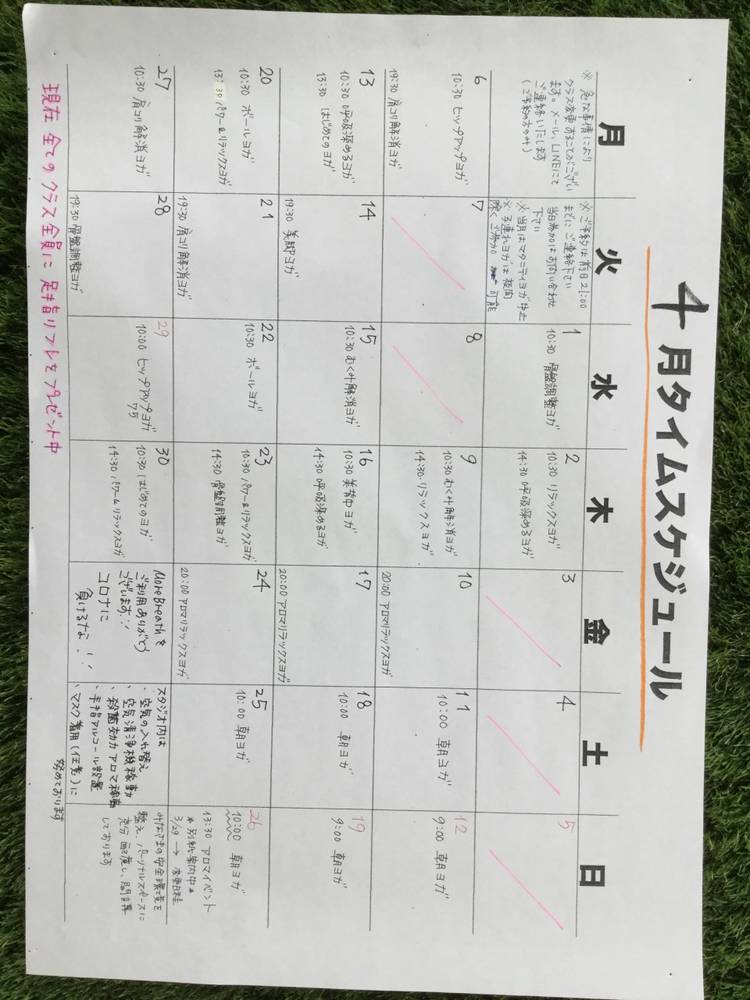 4月タイムスケジュール
月 火 水 木 金 土 日
※ 急な事情により
クラス変更することがござい
ます。メール、LINEにて
ご連絡いたします
(ご予約の方のみ)
※ ご予約は前日21:00
までにご連絡下さい
当日参加はお問い合わせ
下さい
※ 当月はマタニティヨガ中止
※ 子連れヨガは夜間
除くご参加 可能
1
10:30 骨盤調整ヨガ
2
10:30 リラックスヨガ
14:30 呼吸深めるヨガ
3
4
5
6
10:30 ヒップアップヨガ
19:30 肩コリ解消ヨガ
7
8
9
10:30 むくみ解消ヨガ
14:30 リラックスヨガ
10
20:00 アロマリラックスヨガ
11
10:00 朝ヨガ
12
9:00 朝ヨガ
13
10:30 呼吸深めるヨガ
13:30 はじめてのヨガ
14
19:30 美脚ヨガ
15
10:30 むくみ解消ヨガ
16
10:30 美背中ヨガ
14:30 呼吸深めるヨガ
17
20:00 アロマリラックスヨガ
18
10:00 朝ヨガ
19
9:00 朝ヨガ
20
10:30 ボールヨガ
13:30 パワー&リラックスヨガ
21
19:30 肩コリ解消ヨガ
22
10:30 ボールヨガ
23
10:30 パワー&リラックスヨガ
14:30 骨盤調整ヨガ
24
20:00 アロマリラックスヨガ
25
10:00 朝ヨガ
26
10:00 朝ヨガ
13:30 アロマイベント
※別紙案内中※
3/29 → 変更日程
27
10:30 肩コリ解消ヨガ
28
19:30 骨盤調整ヨガ
29
10:00 ヒップアップヨガ
75
30
10:30 はじめてのヨガ
14:30 パワー&リラックスヨガ
More Breathを
ご利用ありがとう
ございます!!
コロナに
負けるな!!
スタジオ内は
・空気の入れ替え
・空気清浄機稼動
・殺菌効力アロマ
・手指アルコール設置
・マスク着用(任意)に
努めております
みなさまの安全環境を
整え、パーソナルスペースに
充分配慮し、
しております
現在 全てのクラス全員に 足指リフレをプレゼント中